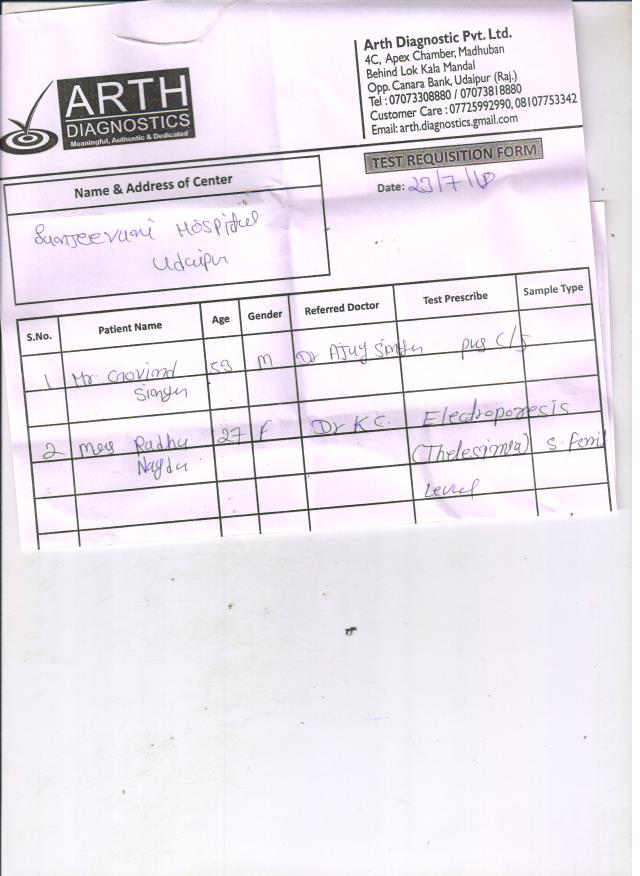 ARTH
DIAGNOSTICS
Meaningful, Authentic & Dedicated
Arth Diagnostic Pvt. Ltd.
4C, Apex Chamber, Madhuban
Behind Lok Kala Mandal
Opp. Canara Bank, Udaipur (Raj.)
Tel : 07073308880 / 07073818880
Customer Care : 07725992990, 08107753342
Email: arth.diagnostics.gmail.com
TEST REQUISITION FORM
Date: 23/7/18
Name & Address of Center
Sanjeevani Hospital
Udaipur
S.No. Patient Name Age Gender Referred Doctor Test Prescribe Sample Type
1 Mr Govind 53 M Dr Ajay Singh pus C/S
Singh
2 Radha 27 F Dr K C. Electroporesis
Nagda (Thelesimia) S. Ferri
Level